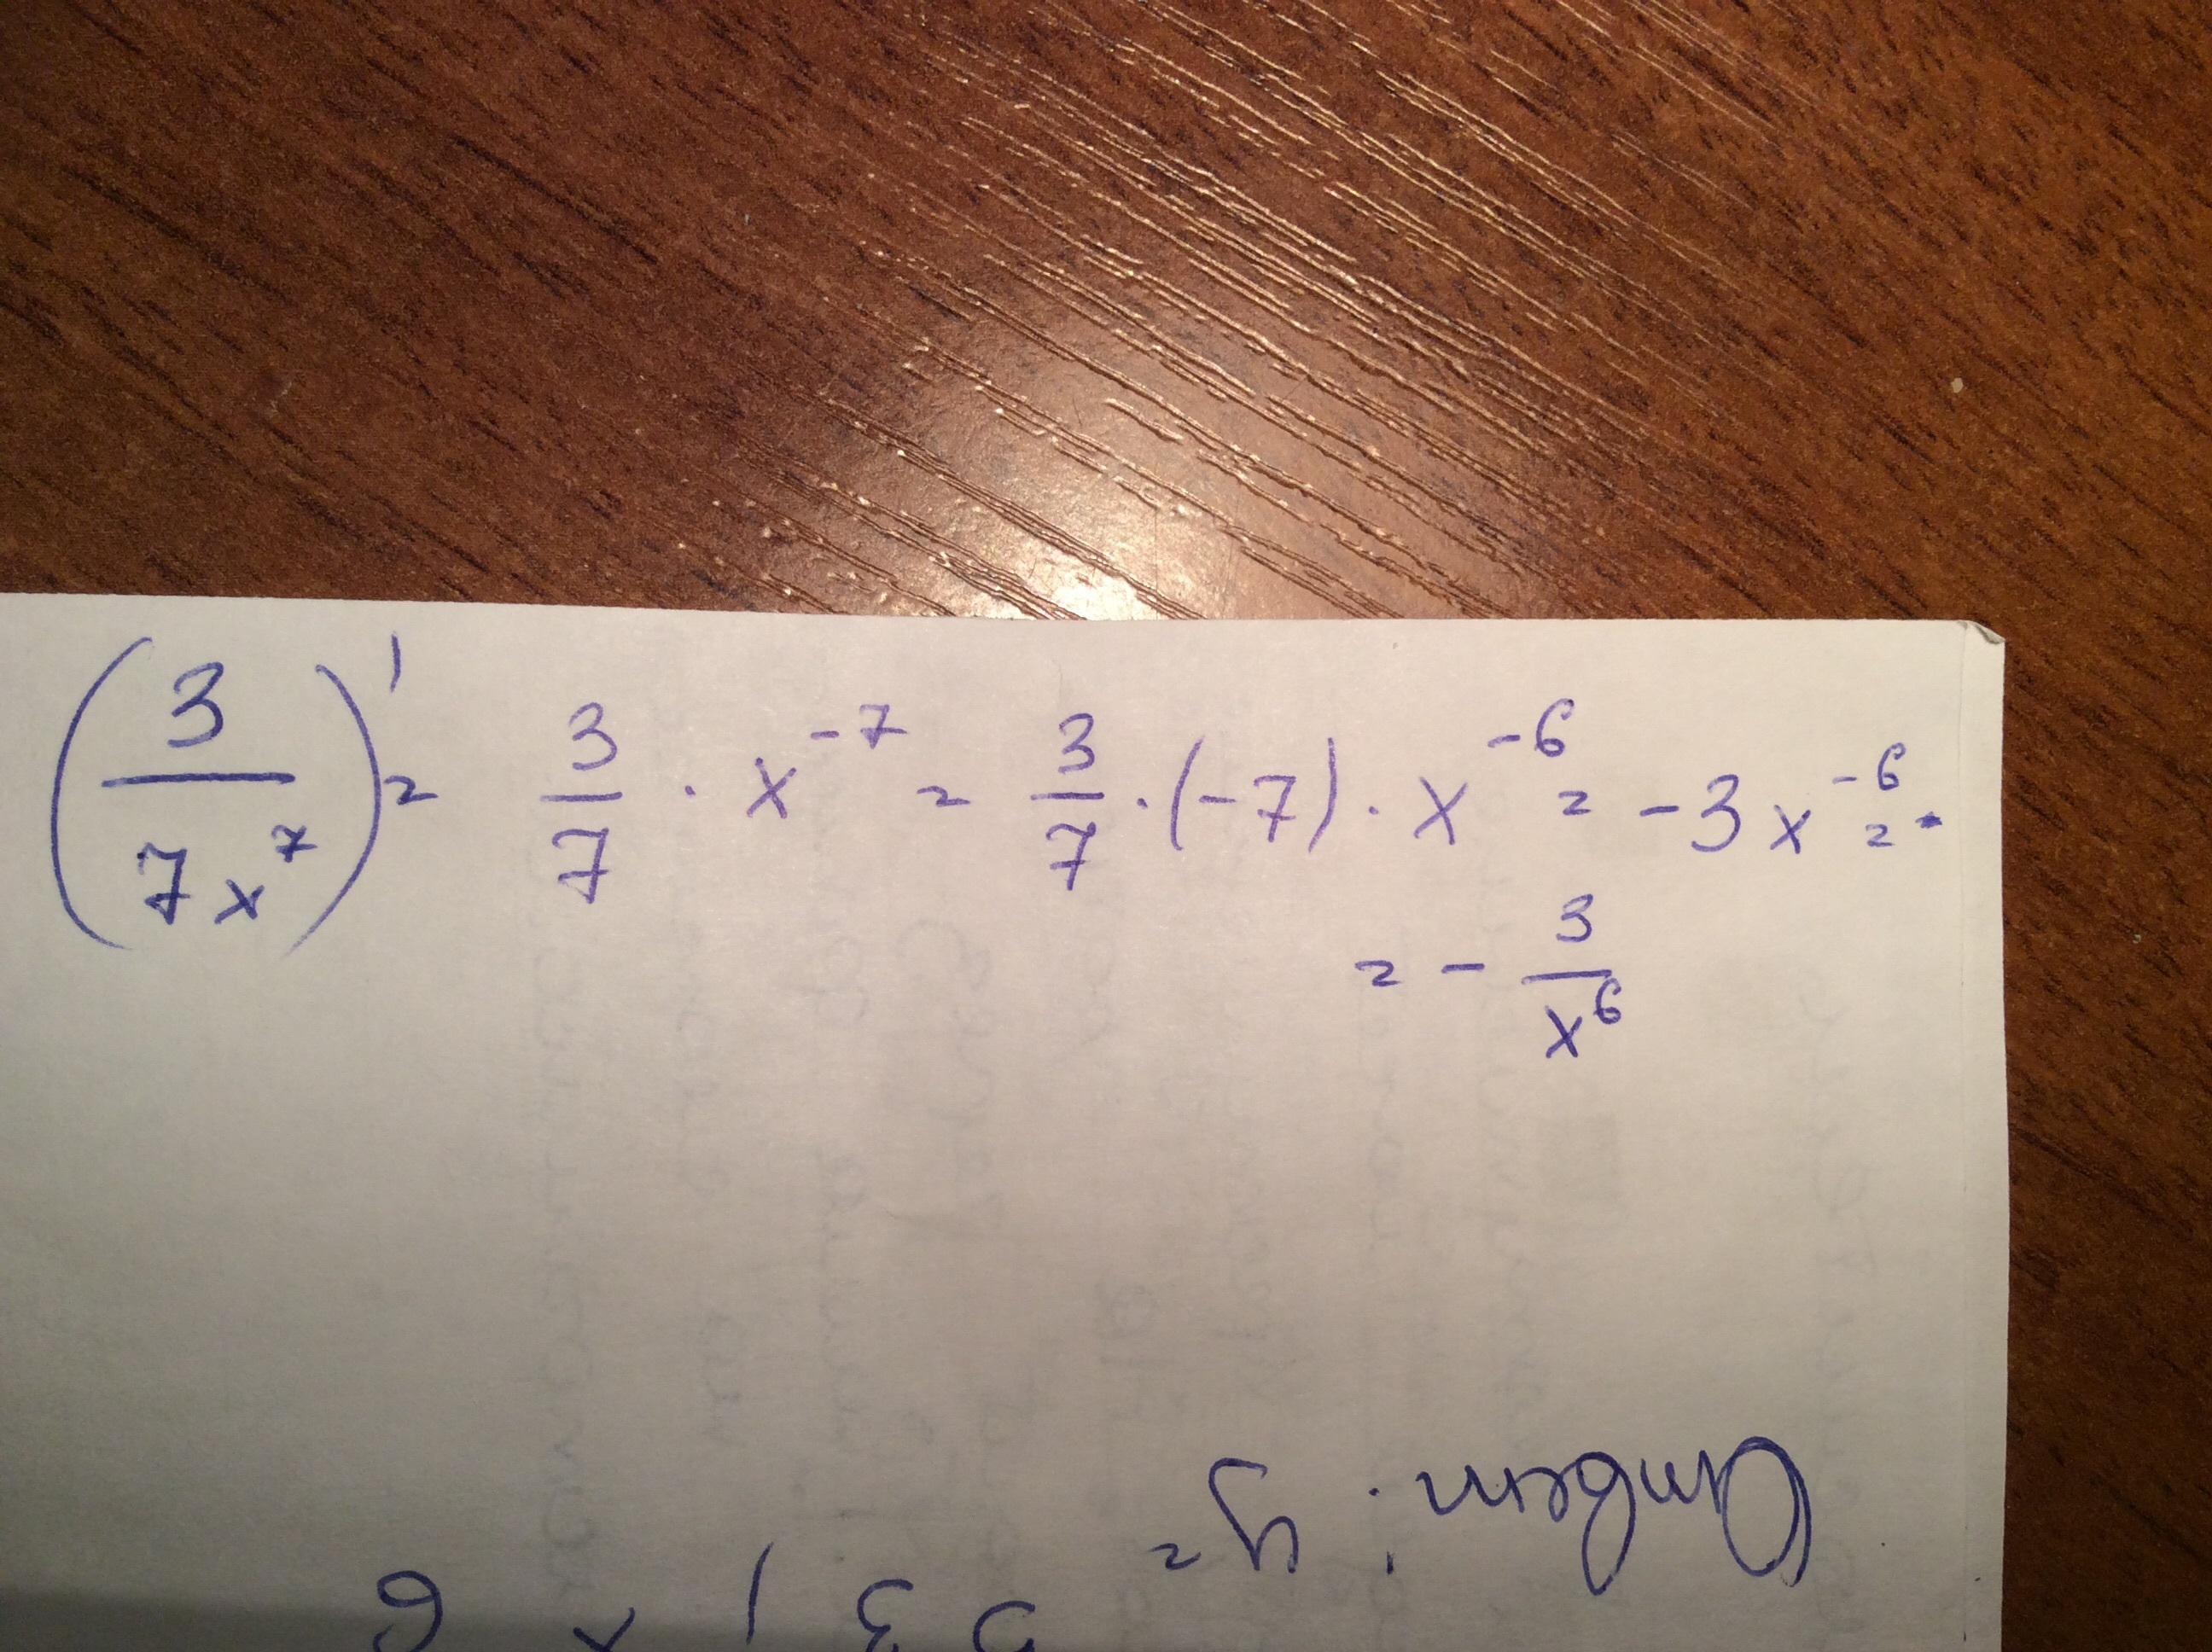 (3/7x⁷)' = 3/7 · x⁻⁷ = 3/7 · (-7) · x⁻⁶ = -3x⁻⁶ =
= - 3/x⁶
Ответ: y =